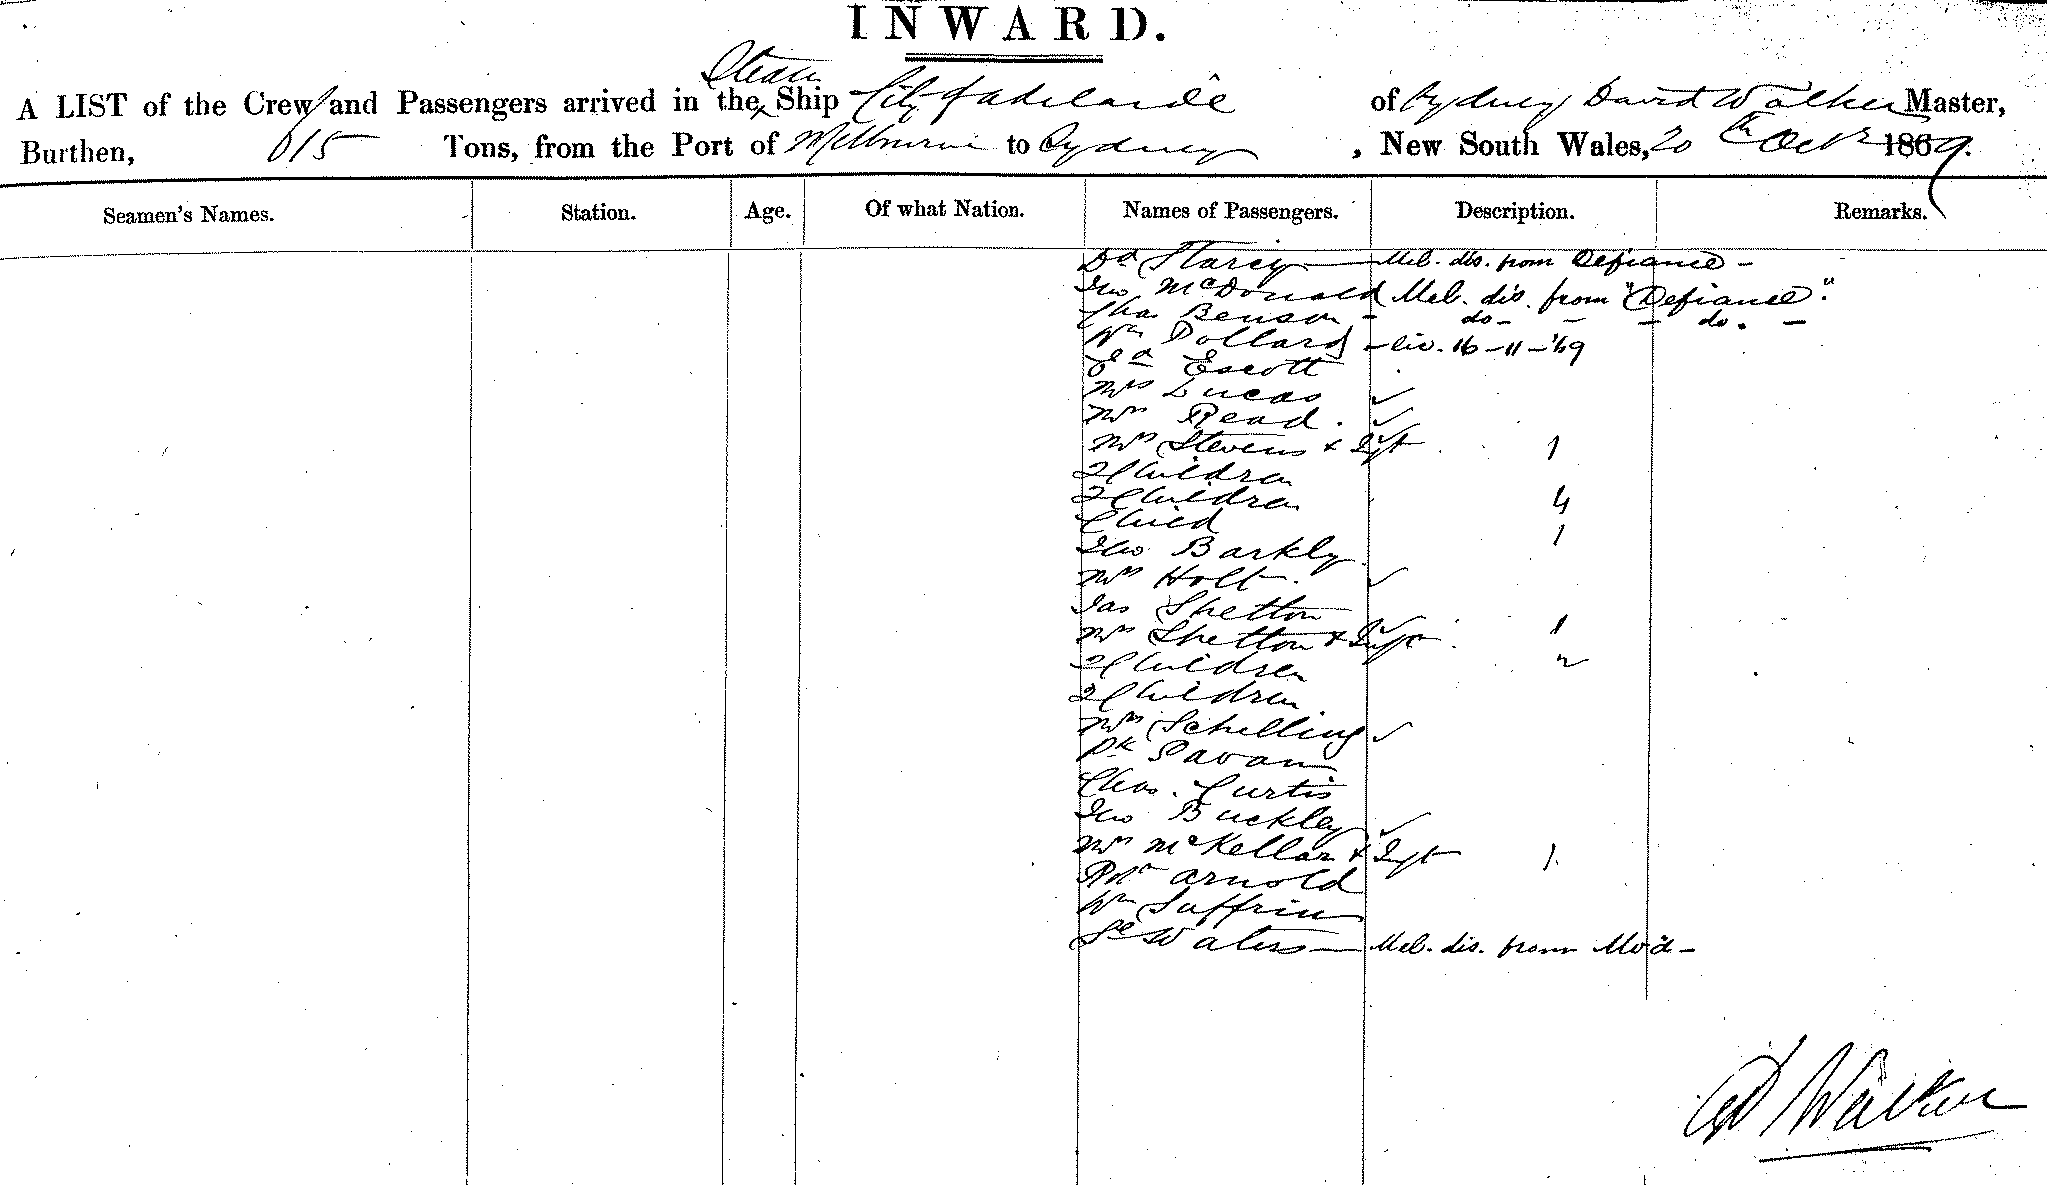 INWARD.
Steam
A LIST of the Crew and Passengers arrived in the Ship City of Adelaide of Sydney David Walker Master,
Burthen, 615 Tons, from the Port of Melbourne to Sydney, New South Wales, 20th Octr 1869.
Seamen's Names. Station. Age. Of what Nation. Names of Passengers. Description. Remarks.
Dd Starcy — Mel. dis. from Defiance -
Jno McDonald Mel. dis. from "Defiance".
Chas Benson - do - - - do. -
Wm Pollard - liv. 16-11-'69
Escott
Mrs Lucas ✓
Mrs Read. ✓
Mrs Stevens & Inft 1
2 Children
2 Children 4
Child 1
Jno Barkly
Mrs Holt. ✓
Jas Shetton
Mrs Shetton & Inft 1
2 Children
2 Children
Mrs Schelling ✓
Pk Pavam
Chas. Curtis
Jno Buckley ✓
Mrs McKellar & Inft 1.
Robt Arnold
Wm Suffrin
Waters — Mel. dis. from
D Walker